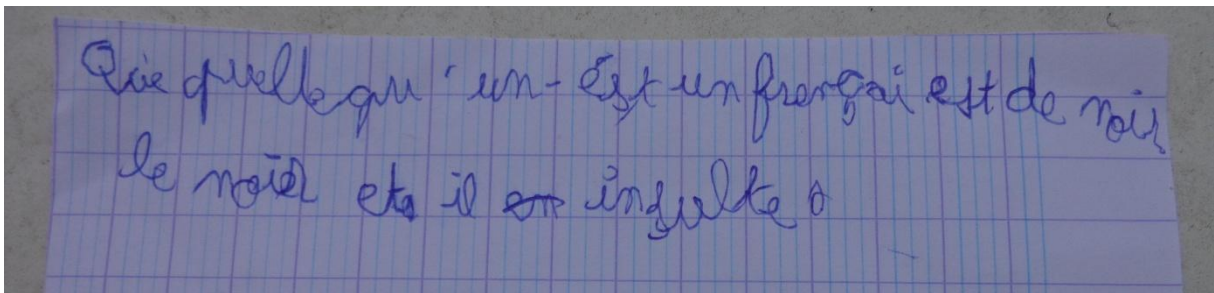 Que quellequ'un-est un françai est de noir
le noir et il insulte